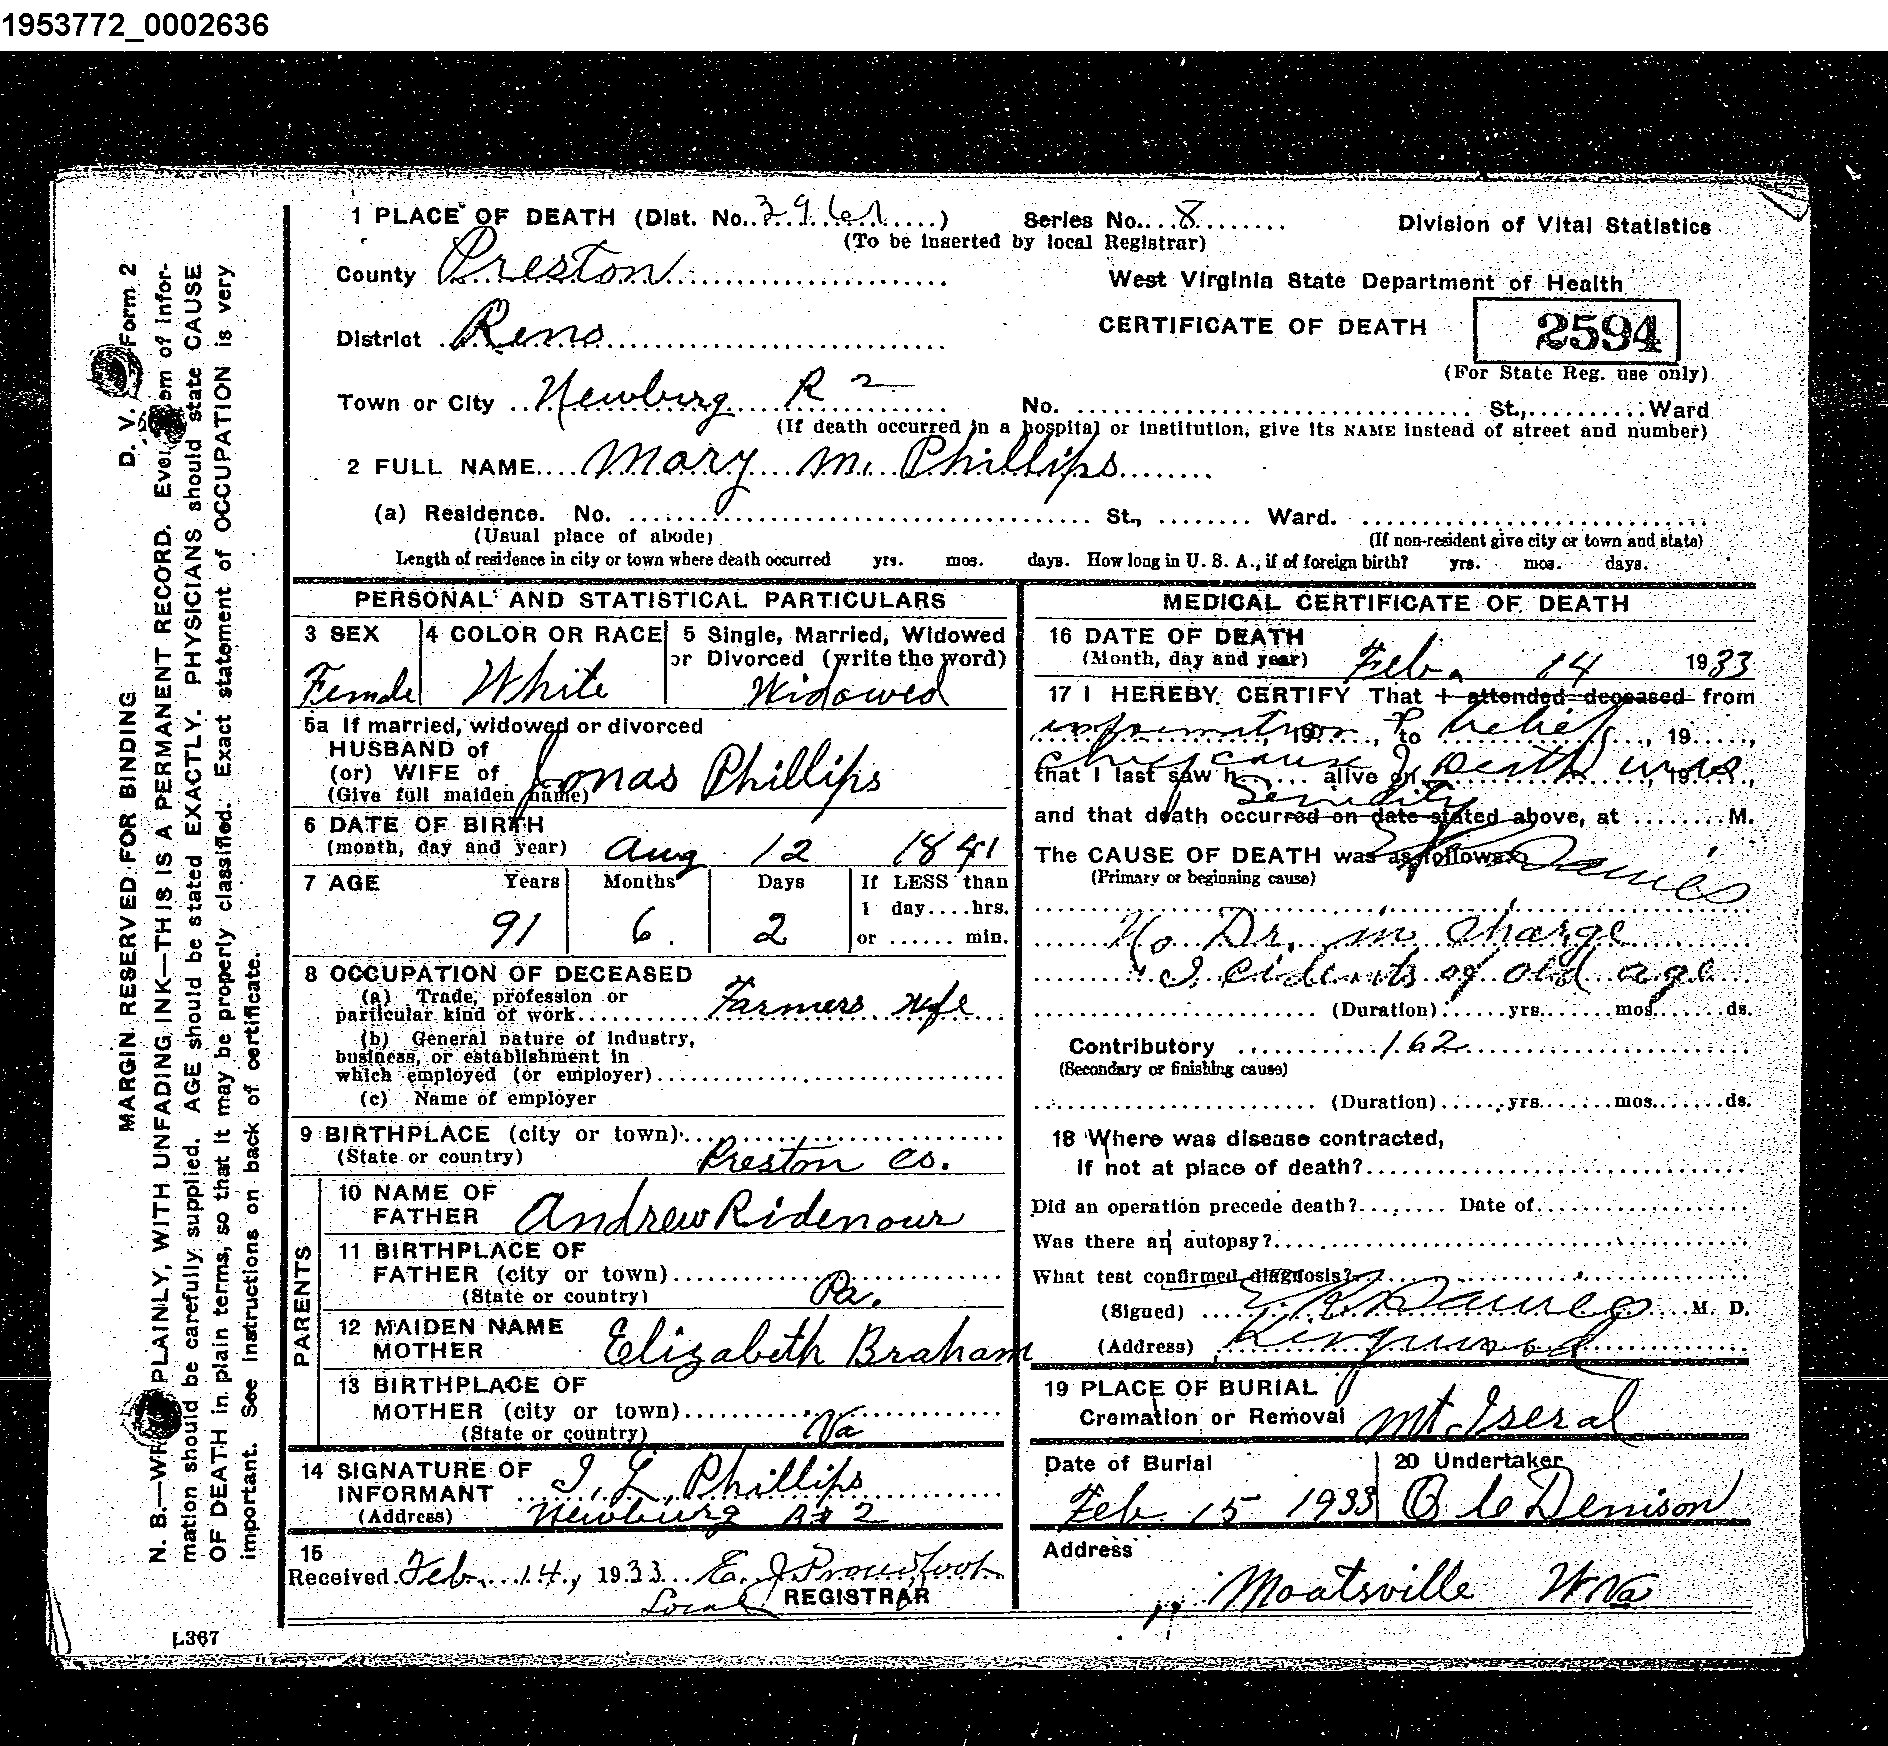 1953772_0002636
1 PLACE OF DEATH (Dist. No. 2961) Series No. 8 Division of Vital Statistics
(To be inserted by local Registrar)
County Preston West Virginia State Department of Health
District Reno CERTIFICATE OF DEATH 2594
(For State Reg. use only)
Town or City Newburg R 2 No. St., Ward
(If death occurred in a hospital or institution, give its NAME instead of street and number)
2 FULL NAME Mary M. Phillips
(a) Residence. No. St., Ward.
(Usual place of abode) (If non-resident give city or town and state)
Length of residence in city or town where death occurred yrs. mos. days. How long in U. S. A., if of foreign birth? yrs. mos. days.
PERSONAL AND STATISTICAL PARTICULARS
3 SEX 4 COLOR OR RACE 5 Single, Married, Widowed
or Divorced (write the word)
Female White Widowed
5a If married, widowed or divorced
HUSBAND of
(or) WIFE of Jonas Phillips
(Give full maiden name)
6 DATE OF BIRTH
(month, day and year) Aug 12 1841
7 AGE Years Months Days If LESS than
1 day....hrs.
91 6 2 or ...... min.
8 OCCUPATION OF DECEASED
(a) Trade, profession or
particular kind of work Farmers wife
(b) General nature of industry,
business, or establishment in
which employed (or employer)
(c) Name of employer
9 BIRTHPLACE (city or town)
(State or country) Preston Co.
PARENTS
10 NAME OF
FATHER Andrew Ridenour
11 BIRTHPLACE OF
FATHER (city or town)
(State or country) Pa.
12 MAIDEN NAME
MOTHER Elizabeth Braham
13 BIRTHPLACE OF
MOTHER (city or town)
(State or country) Va
14 SIGNATURE OF
INFORMANT I. L. Phillips
(Address) Newburg R# 2
15
Received Feb. 14, 1933 E. J. Proudfoot
Local REGISTRAR
MEDICAL CERTIFICATE OF DEATH
16 DATE OF DEATH
(Month, day and year) Feb. 14 1933
17 I HEREBY CERTIFY That I attended deceased from
information & belief, 19, to, 19
chief cause of death was
that I last saw h alive on, 19
Senility
and that death occurred on date stated above, at M.
The CAUSE OF DEATH was as follows:
(Primary or beginning cause)
No Dr. in charge
of old age
(Duration) yrs. mos. ds.
Contributory 162
(Secondary or finishing cause)
(Duration) yrs. mos. ds.
18 Where was disease contracted,
if not at place of death?
Did an operation precede death? Date of
Was there an autopsy?
What test confirmed diagnosis?
(Signed) M. D.
(Address) Kingwood
19 PLACE OF BURIAL
Cremation or Removal Mt. Iseral
Date of Burial 20 Undertaker
Feb. 15 1933 Denison
Address
Moatsville W Va
MARGIN RESERVED FOR BINDING D. V. Form 2
N. B.—WRITE PLAINLY, WITH UNFADING INK—THIS IS A PERMANENT RECORD. Every item of infor-
mation should be carefully supplied. AGE should be stated EXACTLY. PHYSICIANS should state CAUSE
OF DEATH in plain terms, so that it may be properly classified. Exact statement of OCCUPATION is very
important. See instructions on back of certificate.
L367